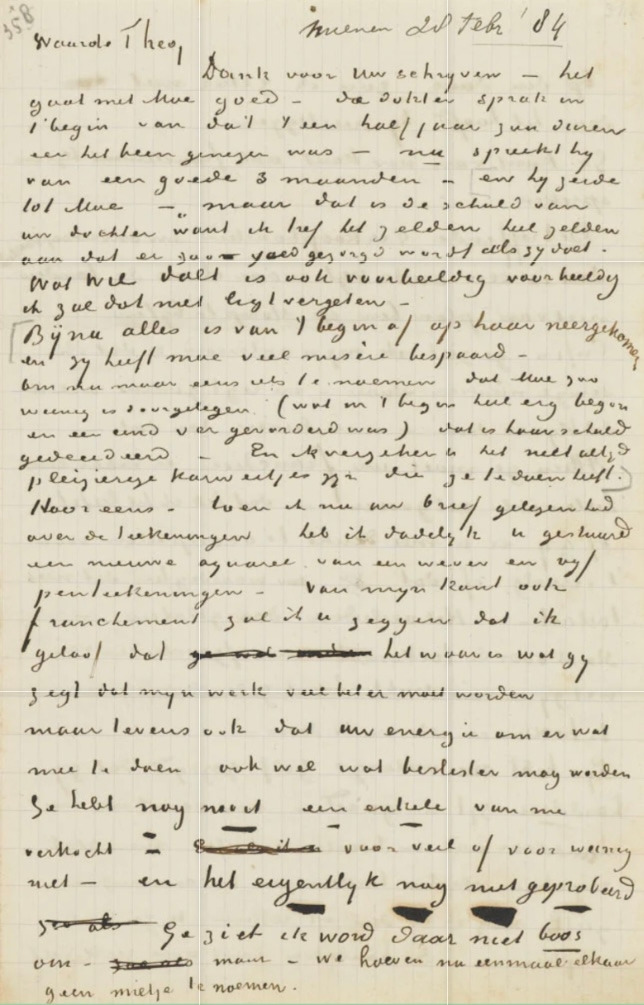 358
Nuenen 28 Febr '84
Waarde Theo,
Dank voor Uw schrijven – het
gaat met Moe goed – de dokter sprak in
't begin van dat 't een half jaar zou duren
eer het been genezen was – nu spreekt hij
van een goede 3 maanden – en hij zeide
tot Moe – „maar dat is de schuld van
uw dochter want ik tref het zelden heel zelden
aan dat er zoo goed gezorgd wordt als zij doet.
Wat Wil doet is ook voorbeeldig voorbeeldig
ik zal dat niet ligt vergeten –
Bijna alles is van 't begin af op haar neergekomen
en zij heeft moe veel misère bespaard –
om nu maar eens iets te noemen dat Moe zoo
weinig is doorgelegen (wat in 't begin heel erg begon
en een eind ver gevorderd was) dat is haar schuld
gedecideerd – En ik verzeker u het niet altijd
pleizierige karweitjes zijn die ze te doen heeft.
Hoor eens – toen ik nu uw brief gelezen had
over de teekeningen heb ik dadelijk u gestuurd
een nieuwe aquarel van een wever en vijf
penteekeningen – Van mijn kant ook
franchement zal ik u zeggen dat ik
geloof dat het waar is wat gij
zegt dat mijn werk veel beter moet worden
maar tevens ook dat uw energie om er wat
mee te doen ook wel wat beslister mag worden
Ge hebt nog nooit een enkele van me
verkocht – voor veel of voor weinig
niet – en het eigentlijk nog niet geprobeerd
Ge ziet ik word daar niet boos
om – maar – we hoeven nu eenmaal elkaar
geen mietje te noemen.